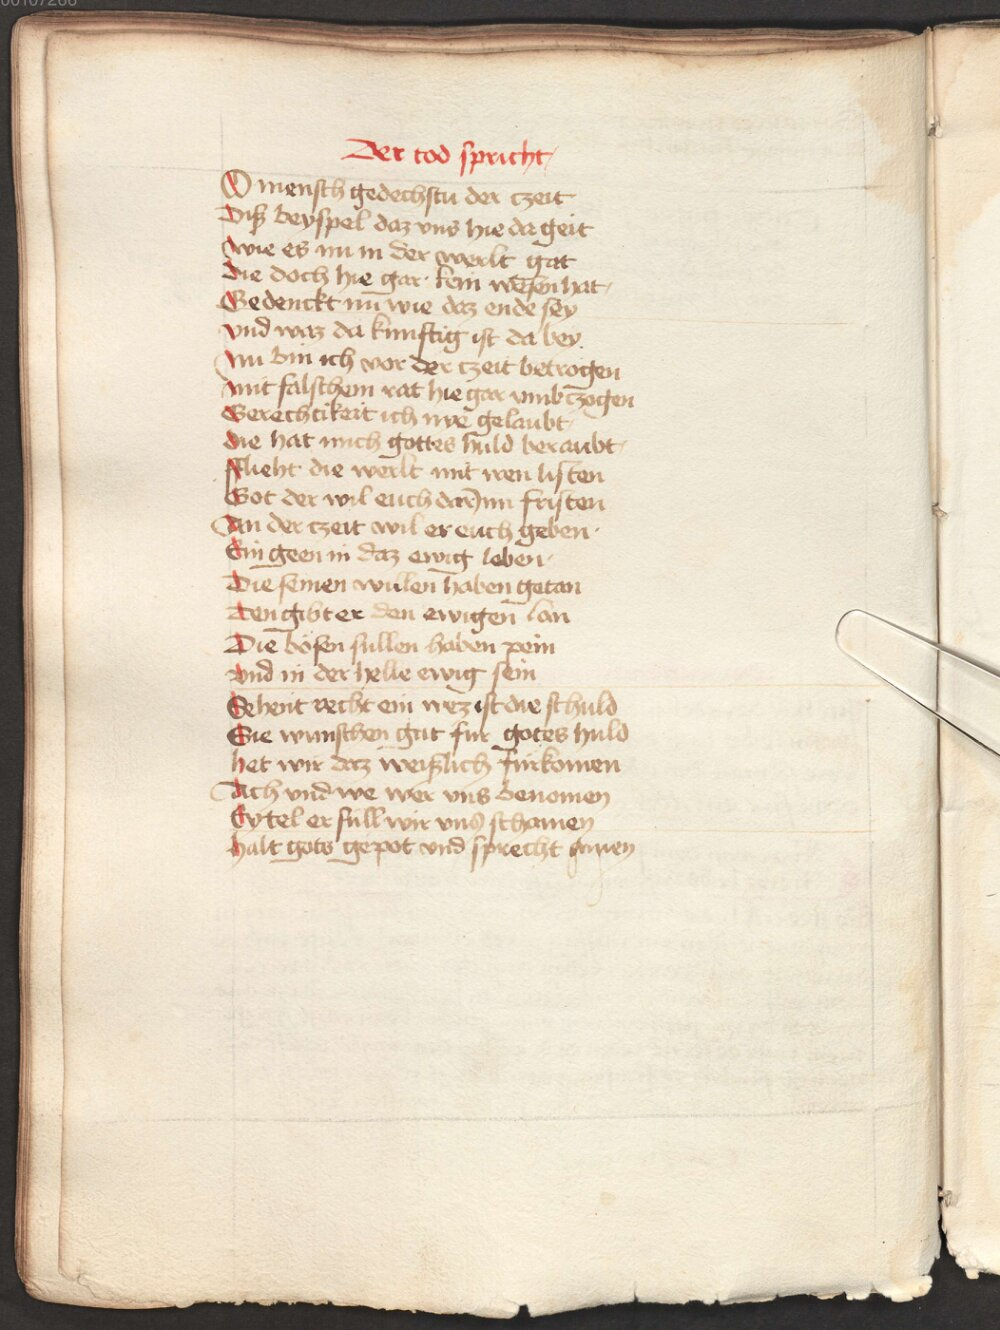 00107266
Der tod spricht
O mensch gedechstu der czeit
Diß beyspel daz vns hie da geit
wie es nu in der werlt gat
die doch hie gar kein wesen hat
Gedenckt nu wie daz ende sey
vnd waz da kunftig ist da bey
Nu bin ich vor der czeit betrogen
mit falschem rat hie gar vmb czogen
Gerechtikeit ich nye gelaubt
die hat mich gottes huld beraubt
flieht die werlt mit iren listen
Got der wil euch dar Inn fristen
An der czeit wil er euch geben
Ein geen in daz ewig leben
Die seinen willen haben getan
den gibt er den ewigen lan
Die bösen sullen haben pein
vnd in der helle ewig sein
Sehent recht ein wez ist die schuld
Sie wunschen gut fur gotes huld
het wir daz weißlich furkomen
Ach vnd we wer vns benomen
Eytel er sull wir vns schamen
halt gots gepot vnd sprecht amen